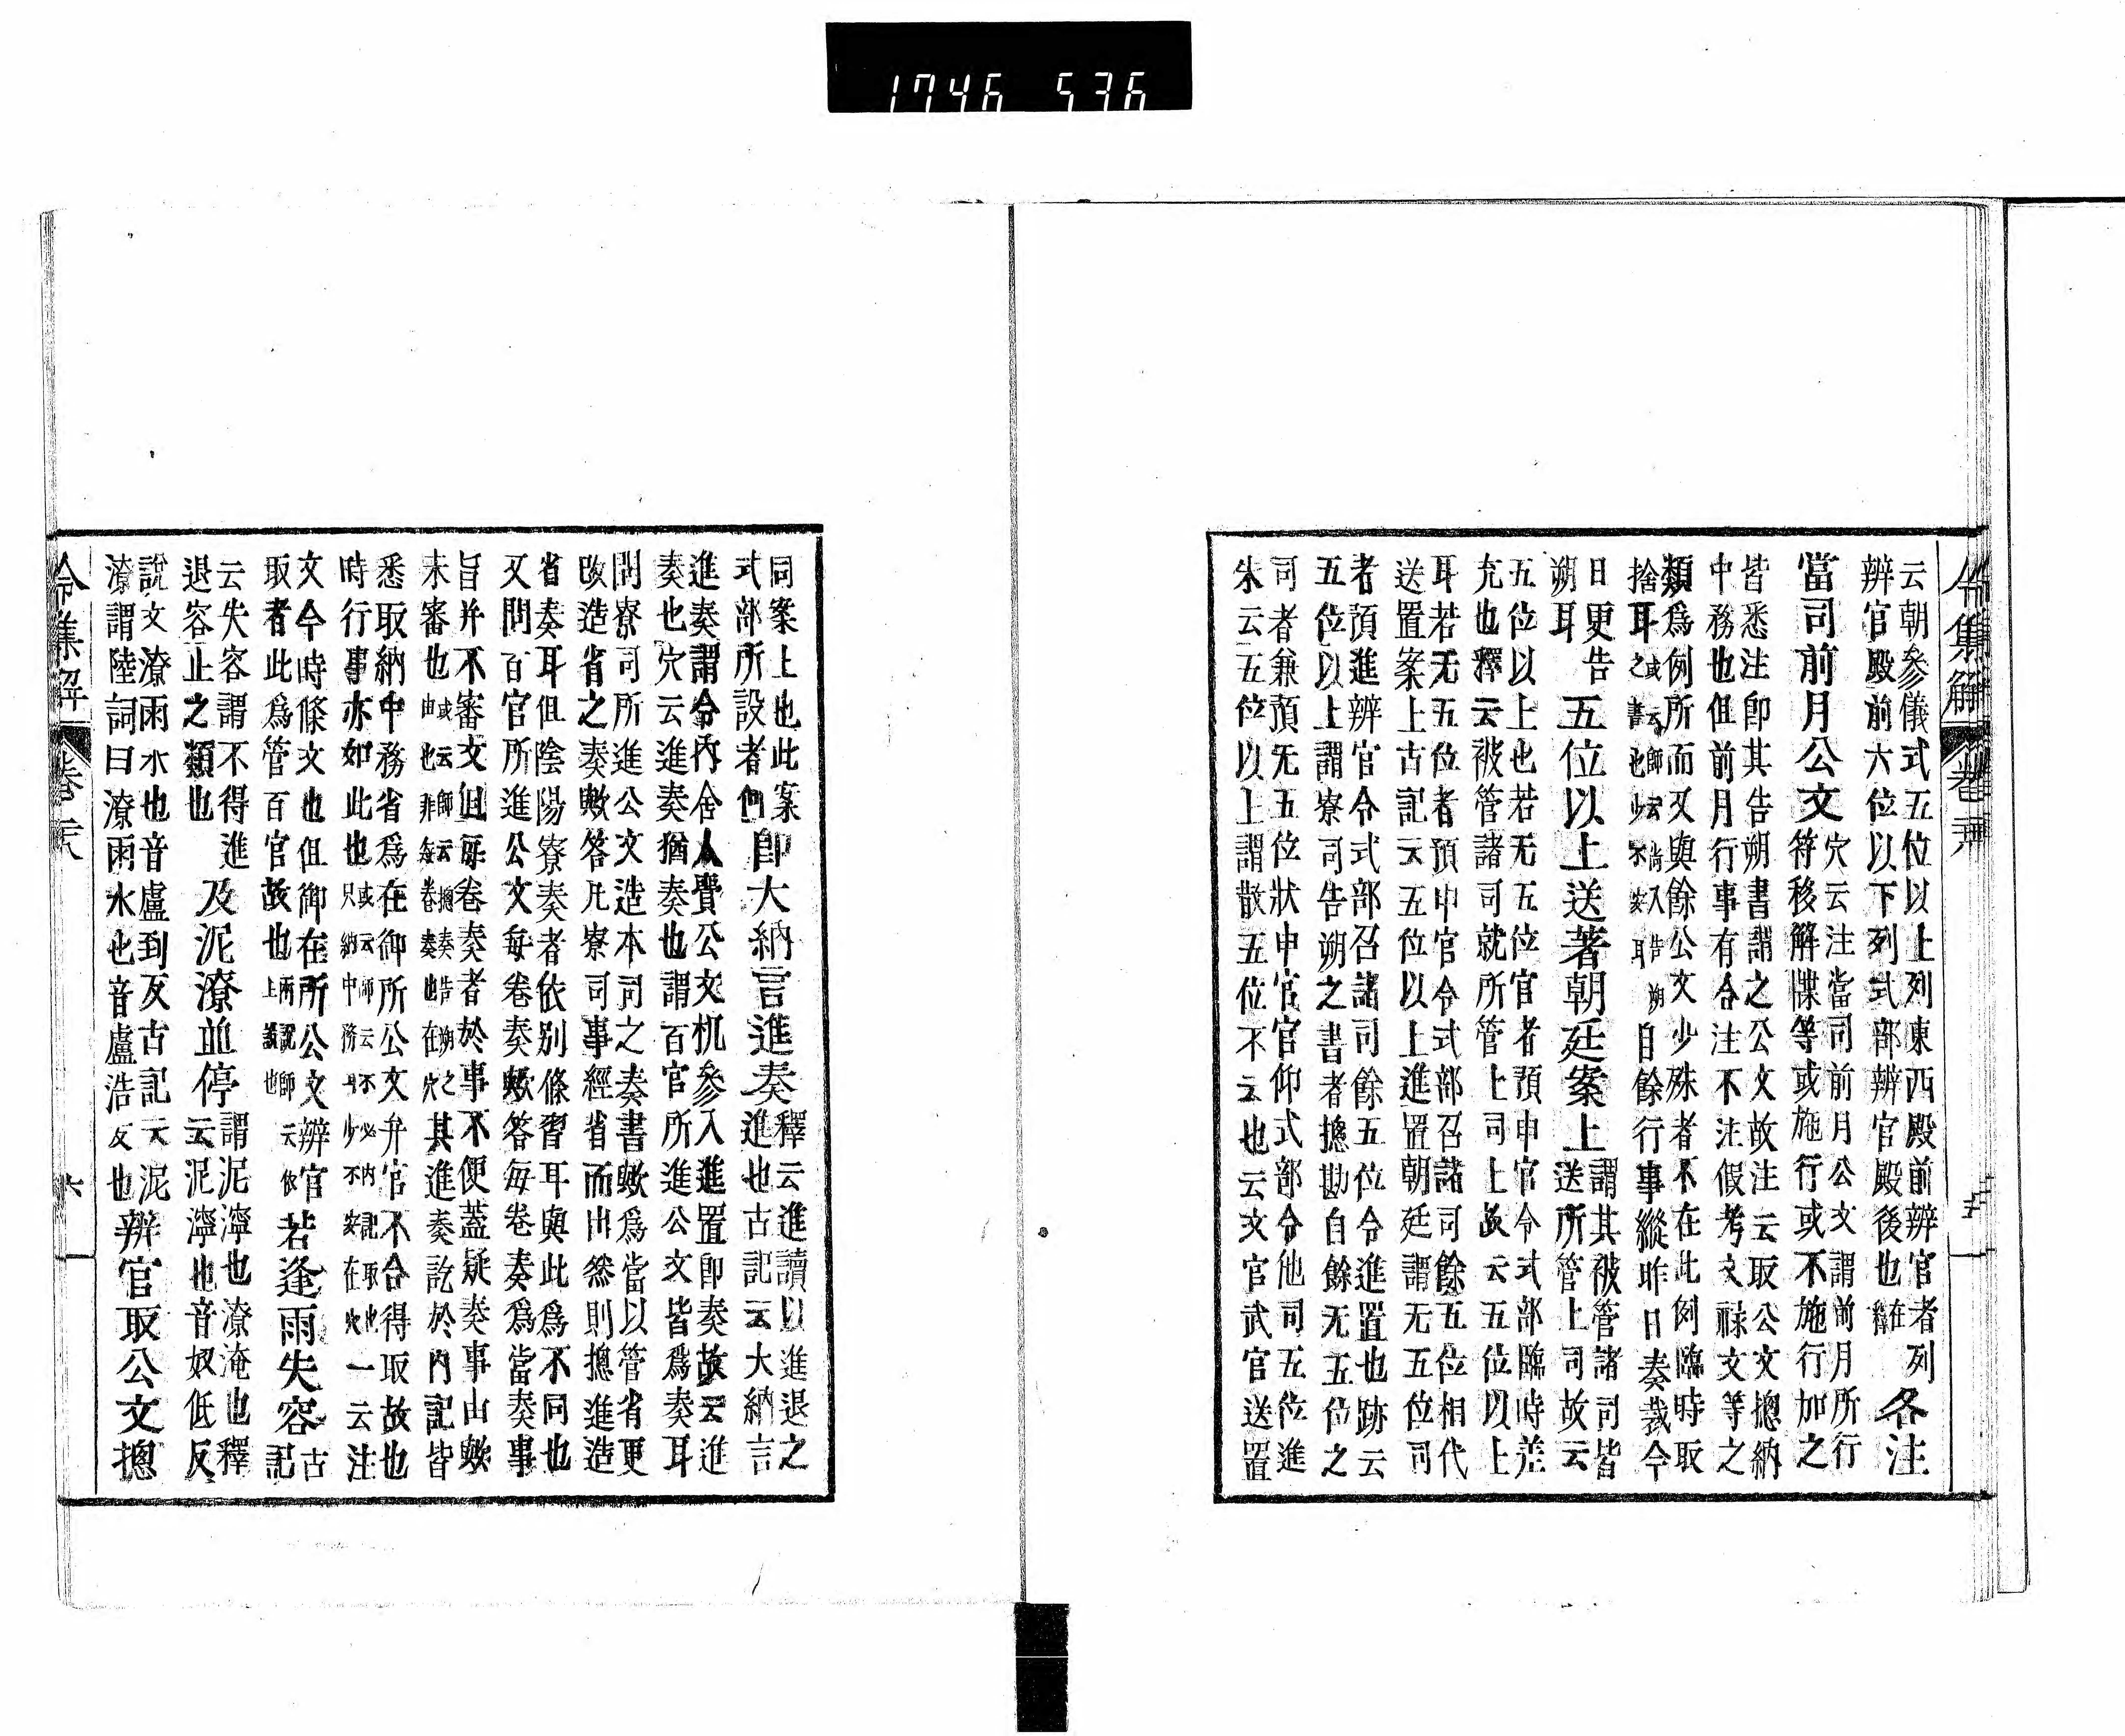 1746 536
令集解 卷
云朝參儀式五位以上列東西殿前辨官者列
辨官殿前六位以下列式部辨官殿後也
各注
當司前月公文
穴云注當司前月公文謂前月所行
符移解牒等或施行或不施行加之
皆悉注即其告朔書謂之公文故注云取公文摠納
中務也但前月行事有合注不注假考文祿文等之
類爲例所而又與餘公文少殊者不在此例臨時取
捨耳
自餘行事縱昨日奏裁今
日更告
朔耳
五位以上送著朝廷案上
謂其被管諸司皆
送所管上司故云
五位以上也若无五位官者預申官令式部臨時差
充也釋云被管諸司就所管上司上故云五位以上
耳若无五位者預申官令式部召諸司餘五位相代
送置案上古記云五位以上進置朝廷謂无五位司
者預進辨官令式部召諸司餘五位令進置也跡云
五位以上謂寮司告朔之書者摠勘自餘无五位之
司者兼預无五位狀申官官仰式部令他司五位進
朱云五位以上謂散五位不云也云文官武官送置
同案上也此案
式部所設者
即大納言進奏
釋云進讀以進退之
進也古記云大納言
進奏謂令内舍人費公文机參入進置即奏故云進
奏也穴云進奏猶奏也謂百官所進公文皆爲奏耳
問寮司所進公文造本司之奏書歟爲當以管省更
改造省之奏歟答凡寮司事經省而出然則摠進造
省奏耳但陰陽寮奏者依別條習耳與此爲不同也
又問百官所進公文每卷奏歟答每卷奏爲當奏事
旨并不審文但每卷奏者於事不便蓋疑奏事由歟
未審也
其進奏訖於内記皆
悉取納中務省爲在御所公文弁官不合得取故也
時行事亦如此也
一云注
文今時條文也但御在所公文辨官
取者此爲管百官故也
若逢雨失容
古記
云失容謂不得進
退容止之類也
及泥潦並停
謂泥濘也潦淹也釋
云泥濘也音奴低反
說文潦雨水也音盧到反古記云泥
潦謂陸詞曰潦雨水也音盧浩反也
辨官取公文摠
令集解 卷 六